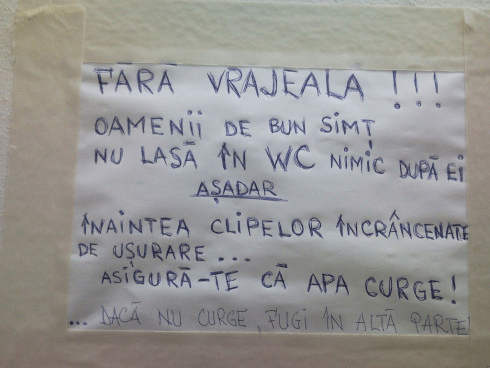 FĂRĂ VRĂJEALA !!!
OAMENII DE BUN SIMȚ
NU LASĂ ÎN WC NIMIC DUPĂ EI
AȘADAR
ÎNAINTEA CLIPELOR ÎNCRÂNCENATE
DE UȘURARE...
ASIGURĂ-TE CĂ APA CURGE!
... DACĂ NU CURGE, FUGI ÎN ALTĂ PARTE!